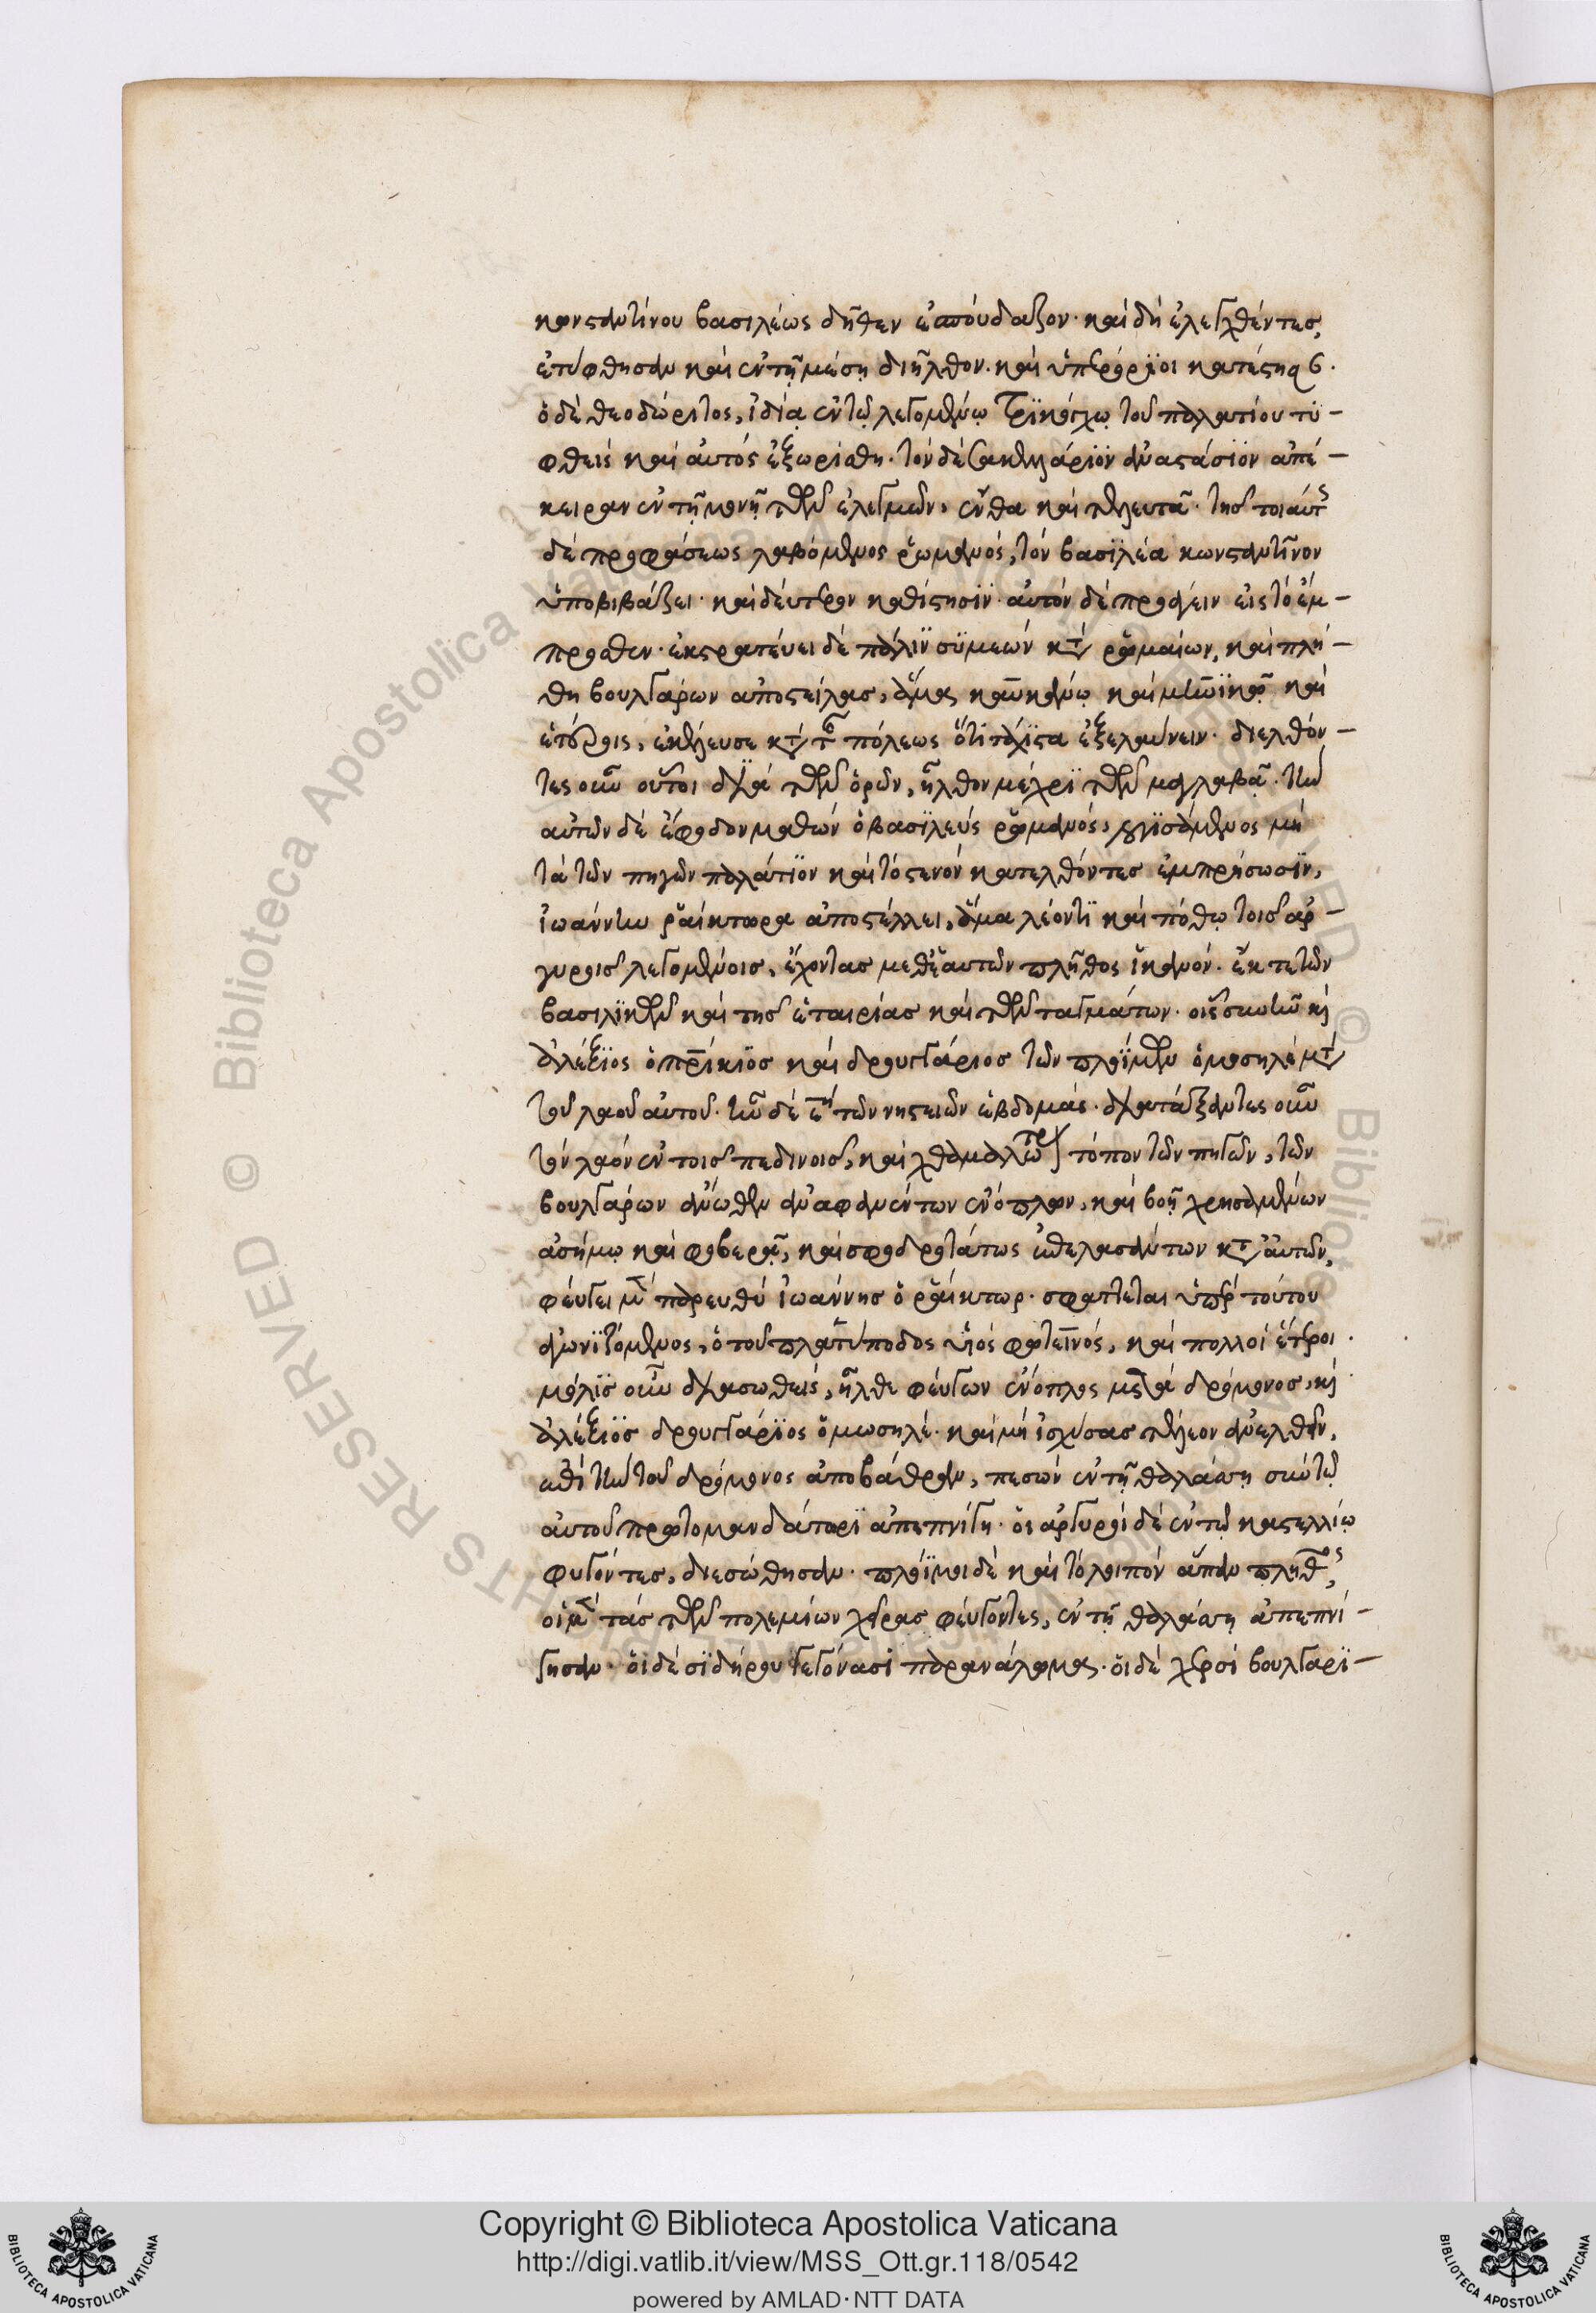 κωνσταντίνου βασιλέως δῆθεν ἐσπούδαζον· καὶ δὴ ἐλεγχθέντες,
ἐτύφθησαν καὶ ἐν τῇ μέσῃ διῆλθον. καὶ ὑπερόριοι κατέστησ.
ὁ δὲ θεοδώριτος, ἰδίᾳ ἐν τῷ λεγομένῳ τρικόγχῳ τοῦ παλατίου τυ-
φθεὶς καὶ αὐτὸς ἐξωρίσθη· τὸν δὲ σακελλάριον ἀναστάσιον ἀπέ-
κειραν ἐν τῇ μονῇ τῶν ἐλεγμῶν, ἔνθα καὶ τελευτᾷ· τῆς τοιαύτης
δὲ προφάσεως λαβόμενος ῥωμανὸς, τὸν βασιλέα κωνσταντῖνον
ὑποβιβάζει· καὶ δεύτερον καθίστησιν· αὐτὸν δὲ προάγειν εἰς τὸ ἔμ-
προσθεν· ἐκστρατεύει δὲ πάλιν συμεὼν κατὰ ῥωμαίων, καὶ πλή-
θη βουλγάρων ἀποστείλας, ἅμα καυκάνῳ καὶ μινικῷ καὶ
ἑτέροις, ἐκέλευσε κατὰ τῆς πόλεως ὅτι τάχιστα ἐξελαύνειν· διελθόν-
τες οὖν οὗτοι διὰ τῶν ὀρῶν, ἦλθον μέχρι τῶν μαγλαβᾶ· τὴν
αὐτῶν δὲ ἔφοδον μαθὼν ὁ βασιλεὺς ῥωμανὸς, λογισάμενος μὴ
τὰ τῶν πηγῶν παλάτιον καὶ τὸ στενὸν κατελθόντες ἐμπρήσωσιν,
ἰωάννην ῥαίκτωρα ἀποστέλλει, ἅμα λέοντι καὶ πόθῳ τοῖς ἀρ-
γυροῖς λεγομένοις, ἔχοντας μεθ' ἑαυτῶν πλῆθος ἱκανόν· ἔκ τε τῶν
βασιλικῶν καὶ τῆς ἑταιρίας καὶ τῶν ταγμάτων· οἷς συνῆν καὶ
ἀλέξιος ὁ πρίκιος καὶ δρουγγάριος τῶν πλοΐμων ὁ μοσηλὲ μετὰ
τοῦ λαοῦ αὐτοῦ· ἦν δὲ πέμπτη τῶν νηστειῶν ἑβδομάς· διατάξαντες οὖν
τὸν λαὸν ἐν τοῖς πεδινοῖς, καὶ χθαμαλωτέροις τόπον τῶν πηγῶν, τῶν
βουλγάρων ἄνωθεν ἀναφανέντων ἐνόπλων, καὶ βοῇ χρησαμένων
ἀσήμῳ καὶ φοβερᾷ, καὶ σφοδροτάτως ἐπελασάντων κατ' αὐτῶν,
φεύγει μὲν παρευθὺ ἰωάννης ὁ ῥαίκτωρ· σφάττεται ὑπὲρ τούτου
ἀγωνιζόμενος, ὁ τοῦ πλατύποδος υἱὸς φωτεινὸς, καὶ πολλοὶ ἕτεροι.
μόλις οὖν διασωθεὶς, ἦλθε φεύγων ἐνόπλος μετὰ δρόμωνος, καὶ
ἀλέξιος δρουγγάριος ὁ μωσηλέ· καὶ μὴ ἰσχύσας πλέον ἀνελθεῖν,
ἐπὶ τὴν τοῦ δρόμωνος ἀποβάθραν, πεσὼν ἐν τῇ θαλάσσῃ σὺν τῷ
αὐτοῦ πρωτομανδάτορι ἀπεπνίγη· οἱ ἀργυροὶ δὲ ἐν τῷ καστελλίῳ
φυγόντες, διεσώθησαν· πλόϊμοι δὲ καὶ τὸ λοιπὸν ἅπαν πλῆθος,
οἱ μὲν τὰς τῶν πολεμίων χεῖρας φεύγοντες, ἐν τῇ θαλάσσῃ ἀπεπνί-
γησαν· οἱ δὲ σιδήρου γεγόνασι παρανάλωμα· οἱ δὲ χερσὶ βουλγαρι-
Copyright © Biblioteca Apostolica Vaticana
http://digi.vatlib.it/view/MSS_Ott.gr.118/0542
powered by AMLAD·NTT DATA